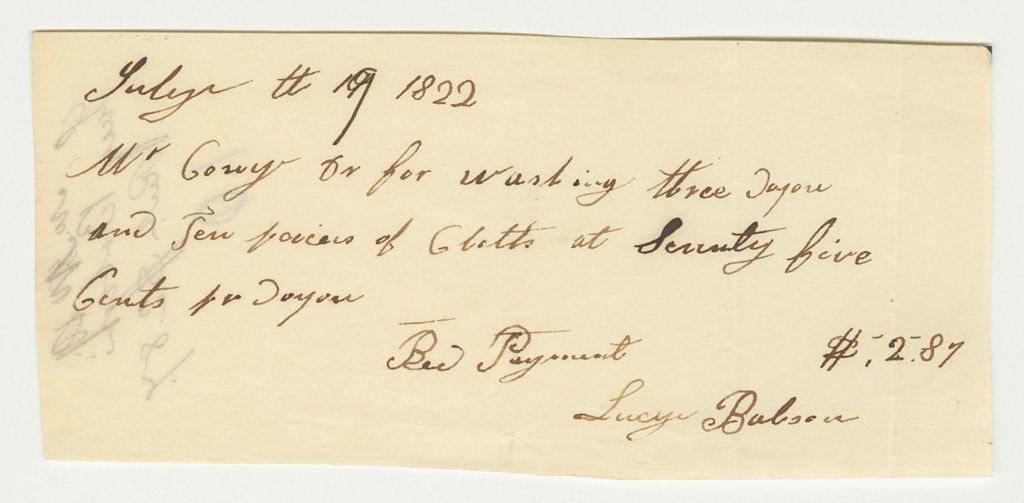 July th 19 1822
Mr Cowy Dr for Washing three dozon
and Ten peices of Cloths at Seventy five
Cents pr dozon
Recd Payment $ 2.87
Lucy Babson